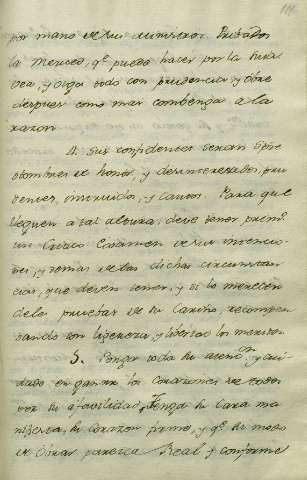 por mano de sus ministros Privados
la merced, q.e puedo hacer por la suia
Vea, y oiga todo con prudencia y obre
despues como mas combenga a la
razon
4. Sus confidentes seran
hombres de honor, y desinteresados, pru
dentes, instruidos, y Cautos. Para que
lleguen a tal altura, deve tener prim.o
un Examen de sus intencio
nes, y demas de las dichas circunstan
cias, que deven tener, y si lo merecen
deles pruebas de su Cariño, recompen
sando con ligereza, y
5. Ponga toda su atencion y cui
dado en ganar los corazones de todos
por su afavilidad, Tenga su Cara ma
nifiesta, su corazon y q.e su modo
de Obrar paresca Real y conforme